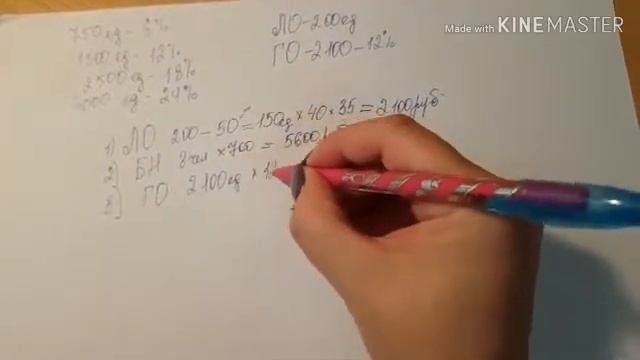 Made with KINEMASTER
750 ед - 6%
1500 ед - 12%
2500 ед - 18%
000 ед - 24%
ЛО - 200 ед
ГО - 2100 - 12%
1) ЛО 200 - 50 = 150 ед × 40 × 35 = 2100 руб
2) БН 8 чел × 700 = 5600
3) ГО 2100 ед × 1